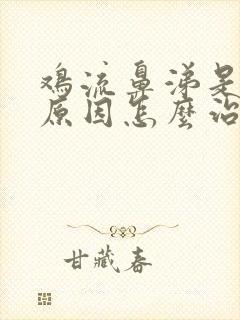 鸡流鼻涕是
原因怎麼治
甘藏春